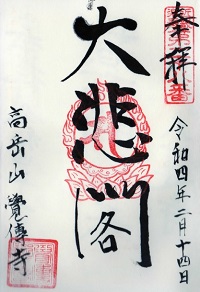 奉拝
令和四年二月十四日
大悲閣
高岳山 覺傳寺